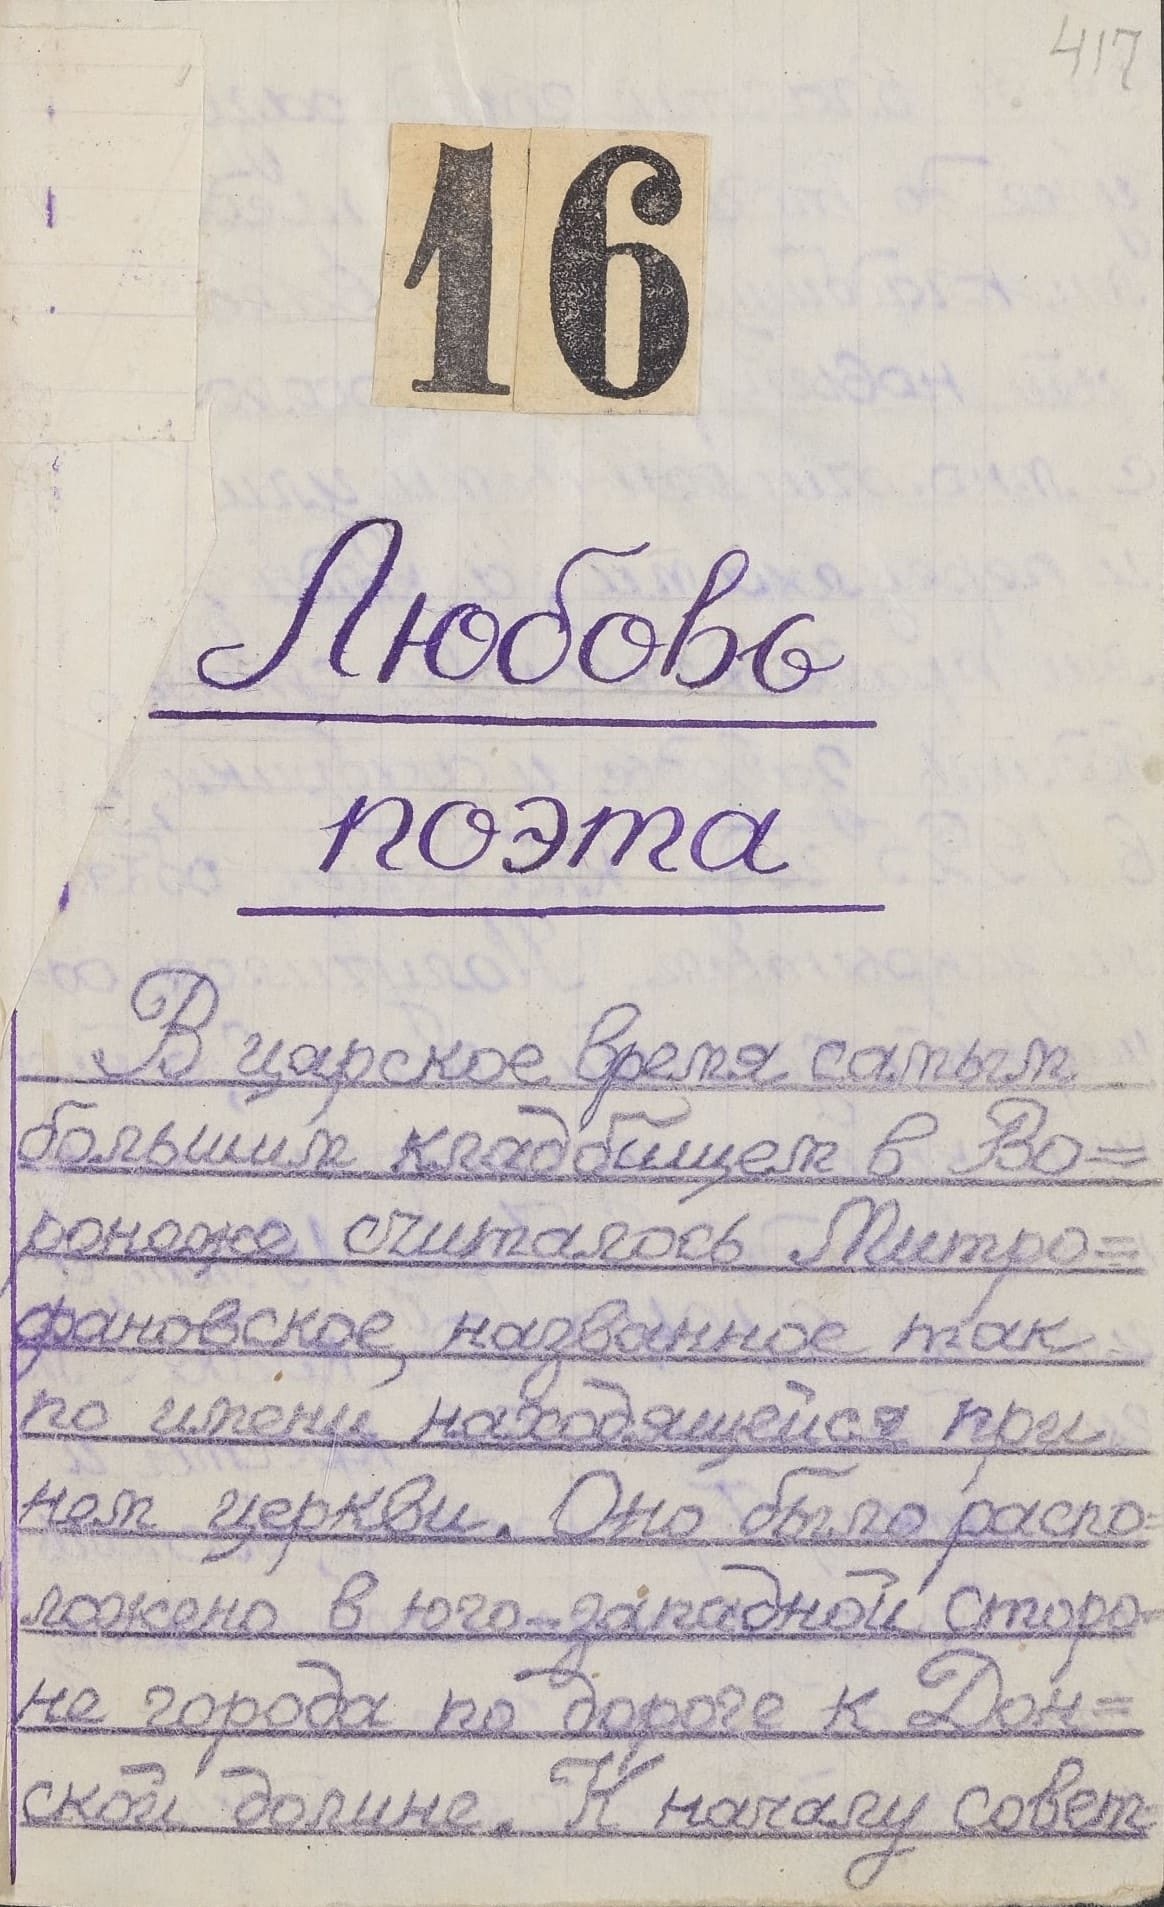 417
16
Любовь
поэта
В царское время самым
большим кладбищем в Во=
ронеже считалось Митро=
фановское, названное так
по имени находящейся при
нем церкви. Оно было распо=
ложено в юго-западной сторо=
не города по дороге к Дон=
ской долине. К началу совет